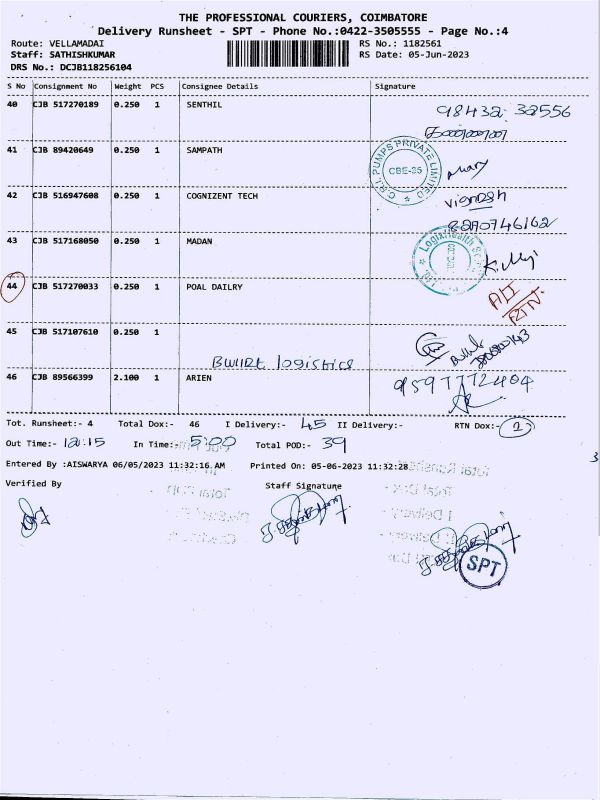 THE PROFESSIONAL COURIERS, COIMBATORE
Delivery Runsheet - SPT - Phone No.:0422-3505555 - Page No.:4
Route: VELLAMADAI RS No.: 1182561
Staff: SATHISHKUMAR RS Date: 05-Jun-2023
DRS No.: DCJB118256104
S No Consignment No Weight PCS Consignee Details Signature
40 CJB 517270189 0.250 1 SENTHIL 98432 38556
41 CJB 89420649 0.250 1 SAMPATH C.R.I. PUMPS PRIVATE LIMITED CBE-35
42 CJB 516947608 0.250 1 COGNIZENT TECH VIGNESH
8270746162
43 CJB 517168050 0.250 1 MADAN
44 CJB 517270033 0.250 1 POAL DAILRY
RTN.
45 CJB 517107610 0.250 1
Logistics
46 CJB 89566399 2.100 1 ARIEN 9597772404
Tot. Runsheet:- 4 Total Dox:- 46 I Delivery:- 45 II Delivery:- RTN Dox:-
Out Time:- 12:15 In Time:- 5:00 Total POD:- 39
Entered By :AISWARYA 06/05/2023 11:32:16 AM Printed On: 05-06-2023 11:32:28
Verified By Staff Signature
SPT